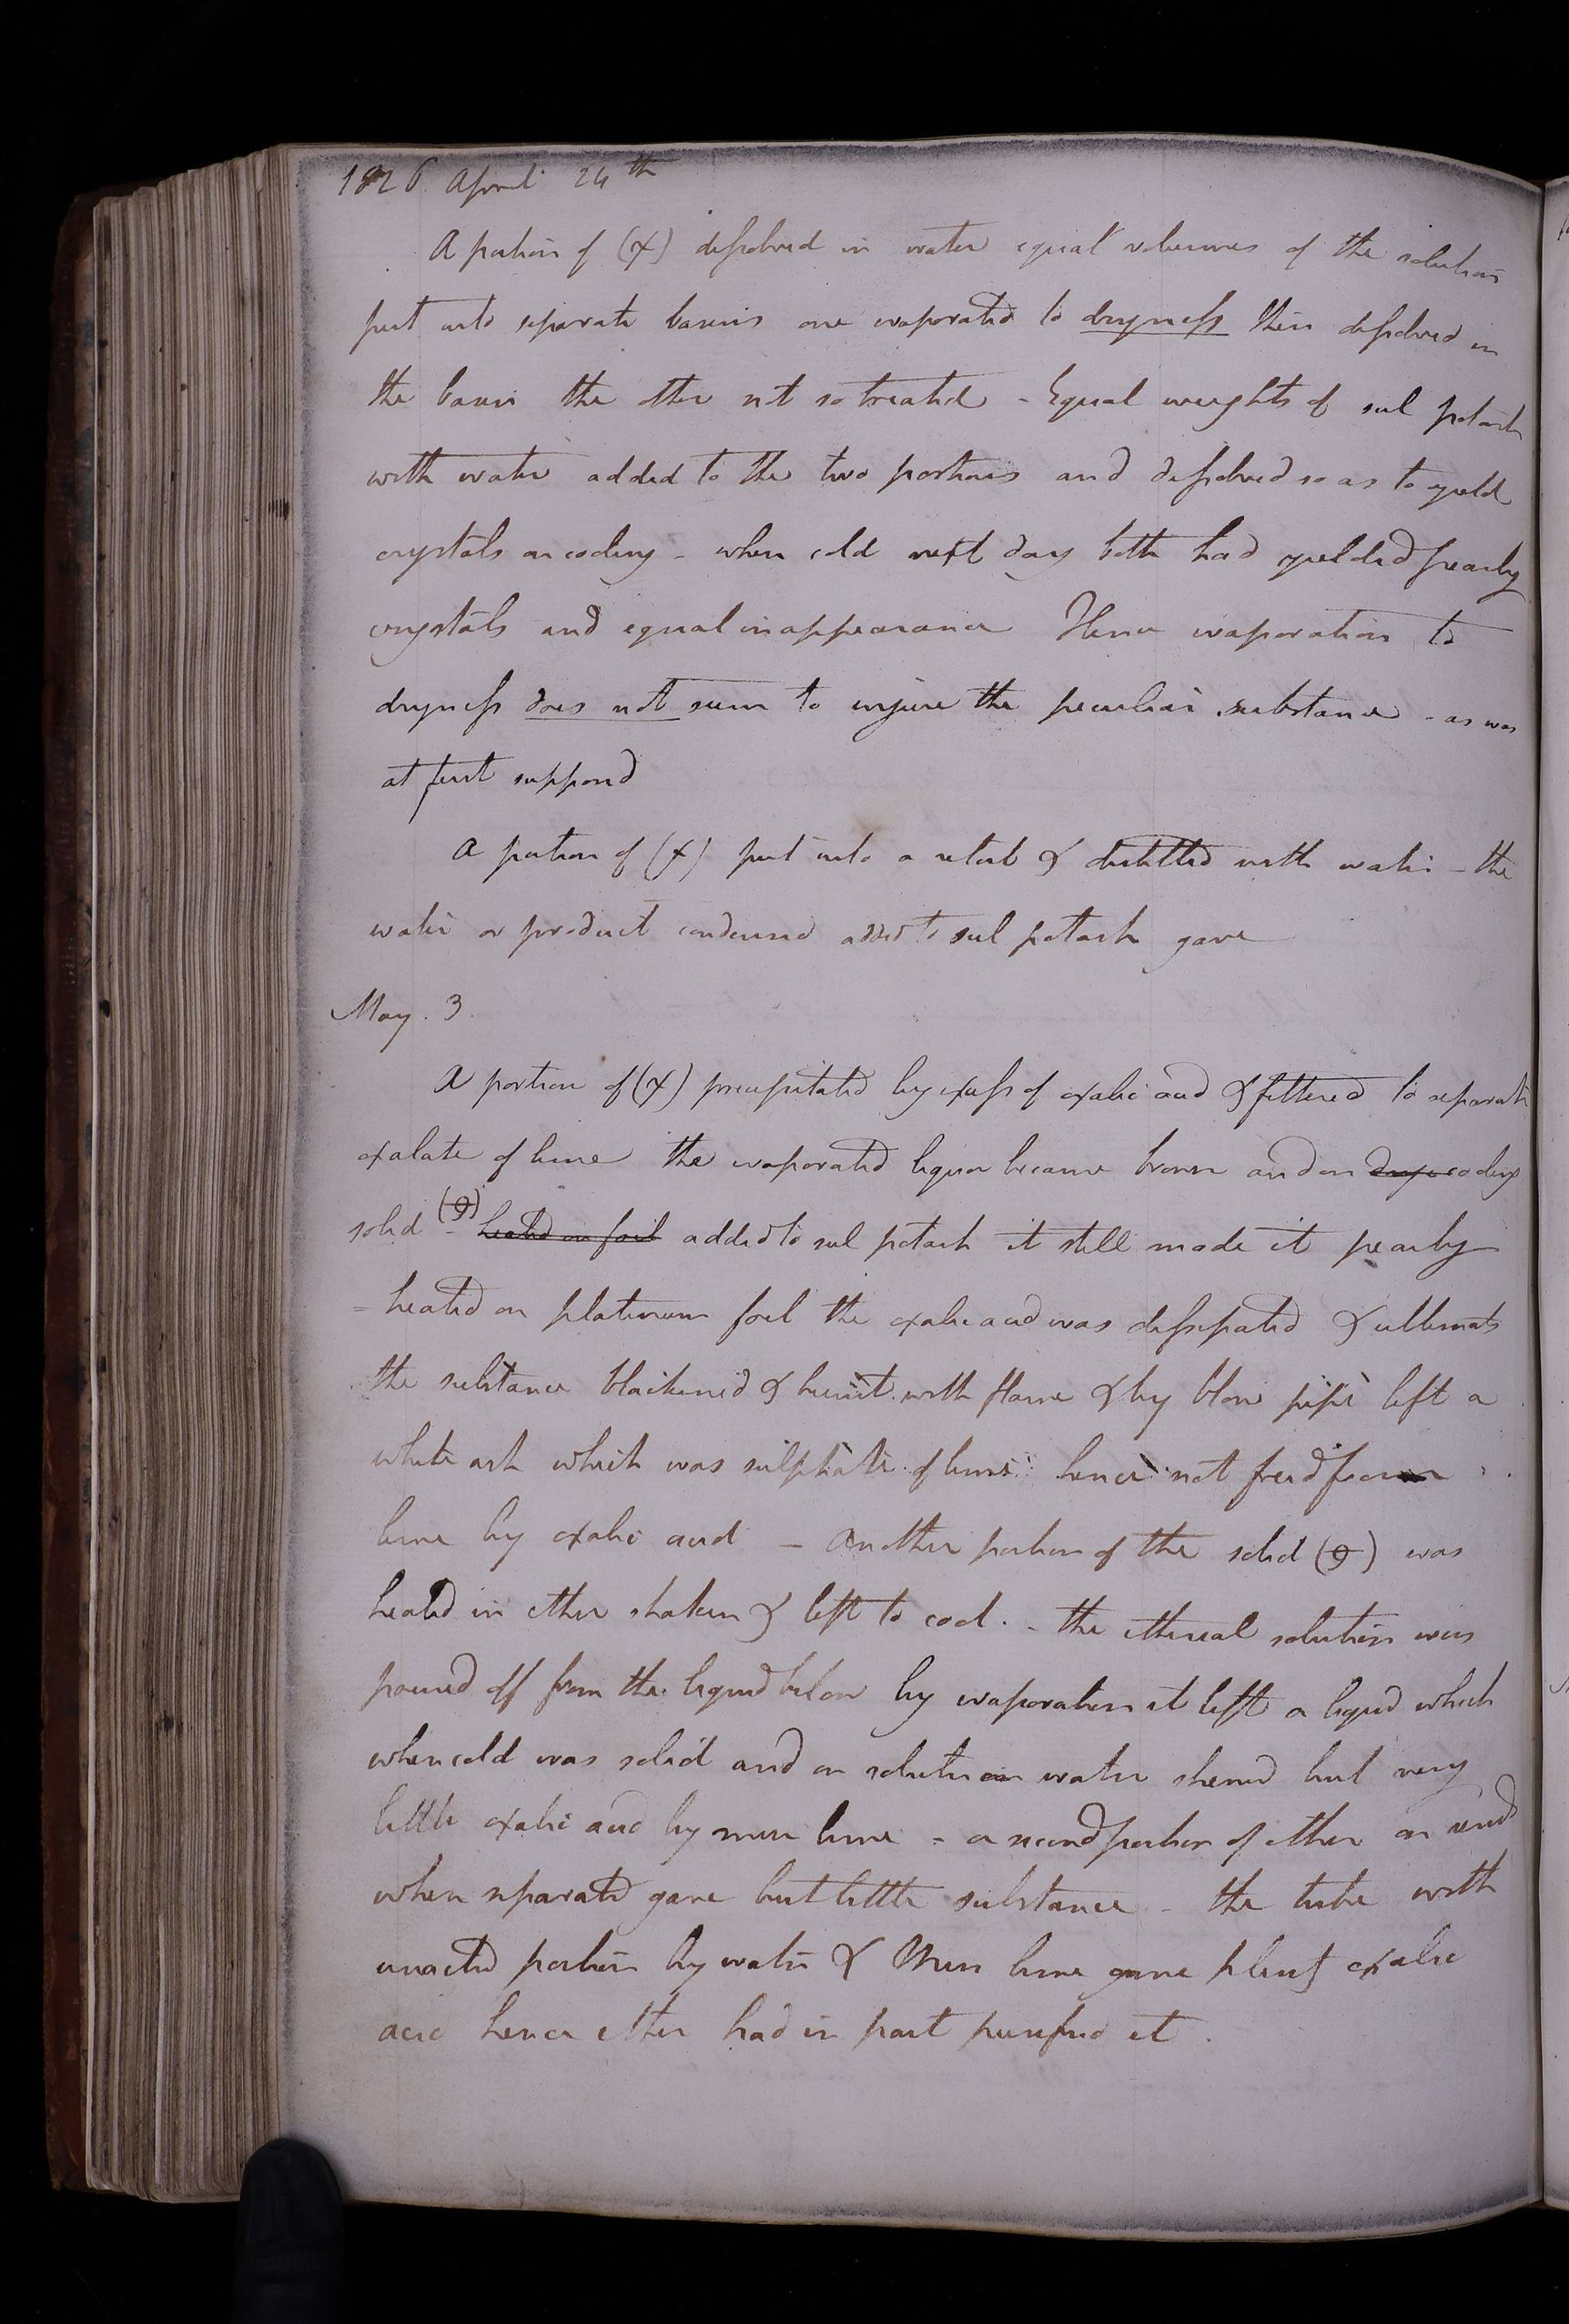 1826 April 24th
A portion of (x) dissolved in water equal volumes of the solution
put into separate basins one evaporated to dryness then dissolved in
the basin the other not so treated - Equal weights of sul potash
with water added to the two portions and dissolved so as to yield
crystals on cooling - when cold next day both had yielded pearly
crystals and equal in appearance Hence evaporation to
dryness does not seem to injure the peculiar substance - as was
at first supposed
A portion of (x) put into a retort & distilled with water - the
water or product condensed added to sul potash gave
May. 3
A portion of (x) precipitated by excess of oxalic acid & filtered to separate
oxalate of lime the evaporated liquor became brown and on cooling
solid (g) - heated on foil added to sul potash it still made it pearly
- heated on platinum foil the oxalic acid was dissipated & ultimately
the substance blackened & burnt with flame & by blow pipe left a
white ash which was sulphate of lime hence not freed from
lime by oxalic acid - Another portion of the solid (g) was
heated in ether shaken & left to cool. - the ethereal solution was
poured off from the liquid below by evaporation it left a liquid which
when cold was solid and on solution in water shewed but very
little oxalic acid by mur lime - a second portion of ether on
when separated gave but little substance - the tube with
unacted portion by water & Mur lime gave plenty oxalic
acid hence ether had in part purified it.